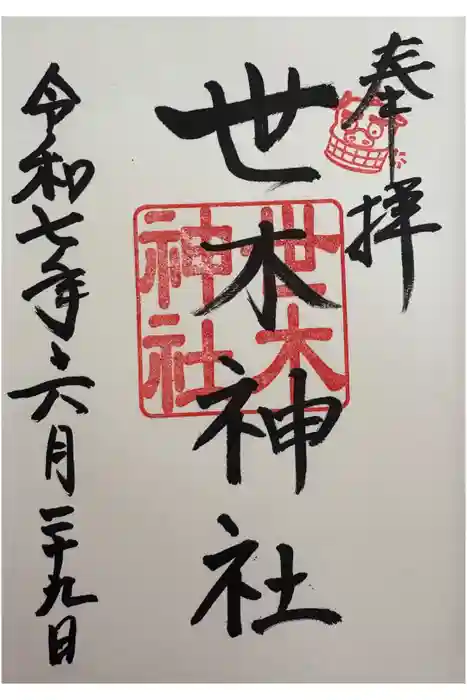 奉拝
世木神社
世木
神社
令和七年六月二十九日